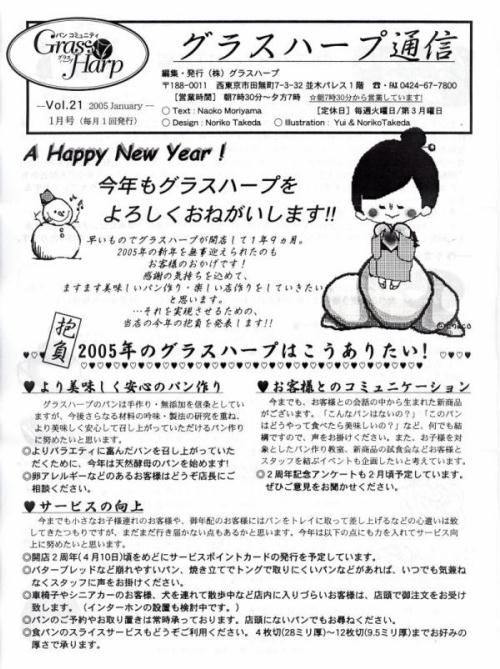 パン コミュニティ
Grass Harp
グラスハープ
グラスハープ通信
―Vol.21 2005 January―
1月号(毎月1回発行)
編集・発行(株)グラスハープ
〒188-0011 西東京市田無町7-3-32 並木パレス1階 ☎・FAX 0424-67-7800
[営業時間] 朝7時30分~夕方7時 ☆朝7時30分から営業しています!
○Text:Naoko Moriyama [定休日]毎週火曜日/第3月曜日
○Design:Noriko Takeda ○Illustration:Yui & NorikoTakeda
A Happy New Year!
今年もグラスハープを
よろしくおねがいします!!
早いものでグラスハープが開店して1年9ヵ月。
2005年の新年を無事迎えられたのも
お客様のおかげです!
感謝の気持ちを込めて、
ますます美味しいパン作り・楽しい店作りをしていきたい
と思います。
…それを実現させるための、
当店の今年の抱負を発表します!!
抱負
2005年のグラスハープはこうありたい!
♥より美味しく安心のパン作り
グラスハープのパンは手作り・無添加を信条としてい
ますが、今後さらなる材料の吟味・製法の研究を重ね、
より美味しく安心して召し上がっていただけるパン作り
に努めたいと思います。
◎よりバラエティに富んだパンを召し上がっていた
だくために、今年は天然酵母のパンを始めます!
◎卵アレルギーなどのあるお客様はどうぞ店長にご
相談ください。
♥お客様とのコミュニケーション
今までも、お客様との会話の中から生まれた新商品
がございます。「こんなパンはないの?」「このパン
はどうやって食べたら美味しいの?」など、何でも結
構ですので、声をお掛けください。また、お子様を対
象としたパン作り教室、新商品の試食会などお客様と
スタッフを結ぶイベントも企画したいと考えています。
◎2周年記念アンケートも2月頃予定しています。
ぜひご意見をお聞かせください。
♥サービスの向上
今までも小さなお子様連れのお客様や、御年配のお客様にはパンをトレイに取って差し上げるなどの心遣いは致
してきたつもりですが、まだまだ行き届かない点もあるかと思います。今年は以下の点にも力を入れてサービス向
上に努めたいと思います。
◎開店2周年(4月10日)頃をめどにサービスポイントカードの発行を予定しています。
◎バターブレッドなど崩れやすいパン、焼き立てでトングで取りにくいパンなどがあれば、いつでも気兼ね
なくスタッフに声をお掛けください。
◎車椅子やシニアカーのお客様、犬を連れて散歩中など店内に入りづらいお客様は、店頭で御注文をお受け
致します。(インターホンの設置も検討中です。)
◎パンのご予約やお取り置きは常時承っております。店頭にないパンでもお尋ねください。
◎食パンのスライスサービスもどうぞご利用ください。4枚切(28ミリ厚)~12枚切(9.5ミリ厚)までお好みの
厚さで承ります。